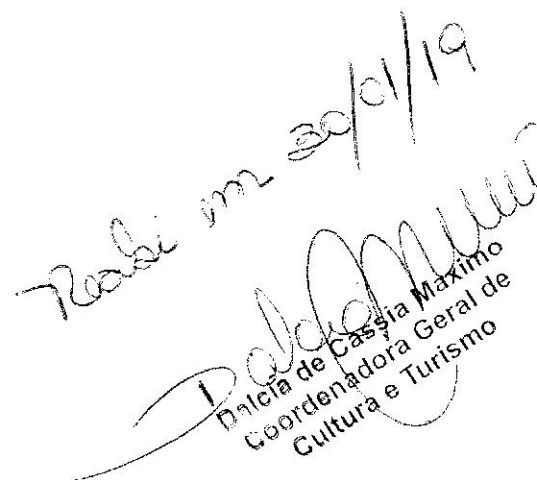 Recebi em 30/01/19
Dalcia
Dalcia de Cassia Maximo
Coordenadora Geral de
Cultura e Turismo